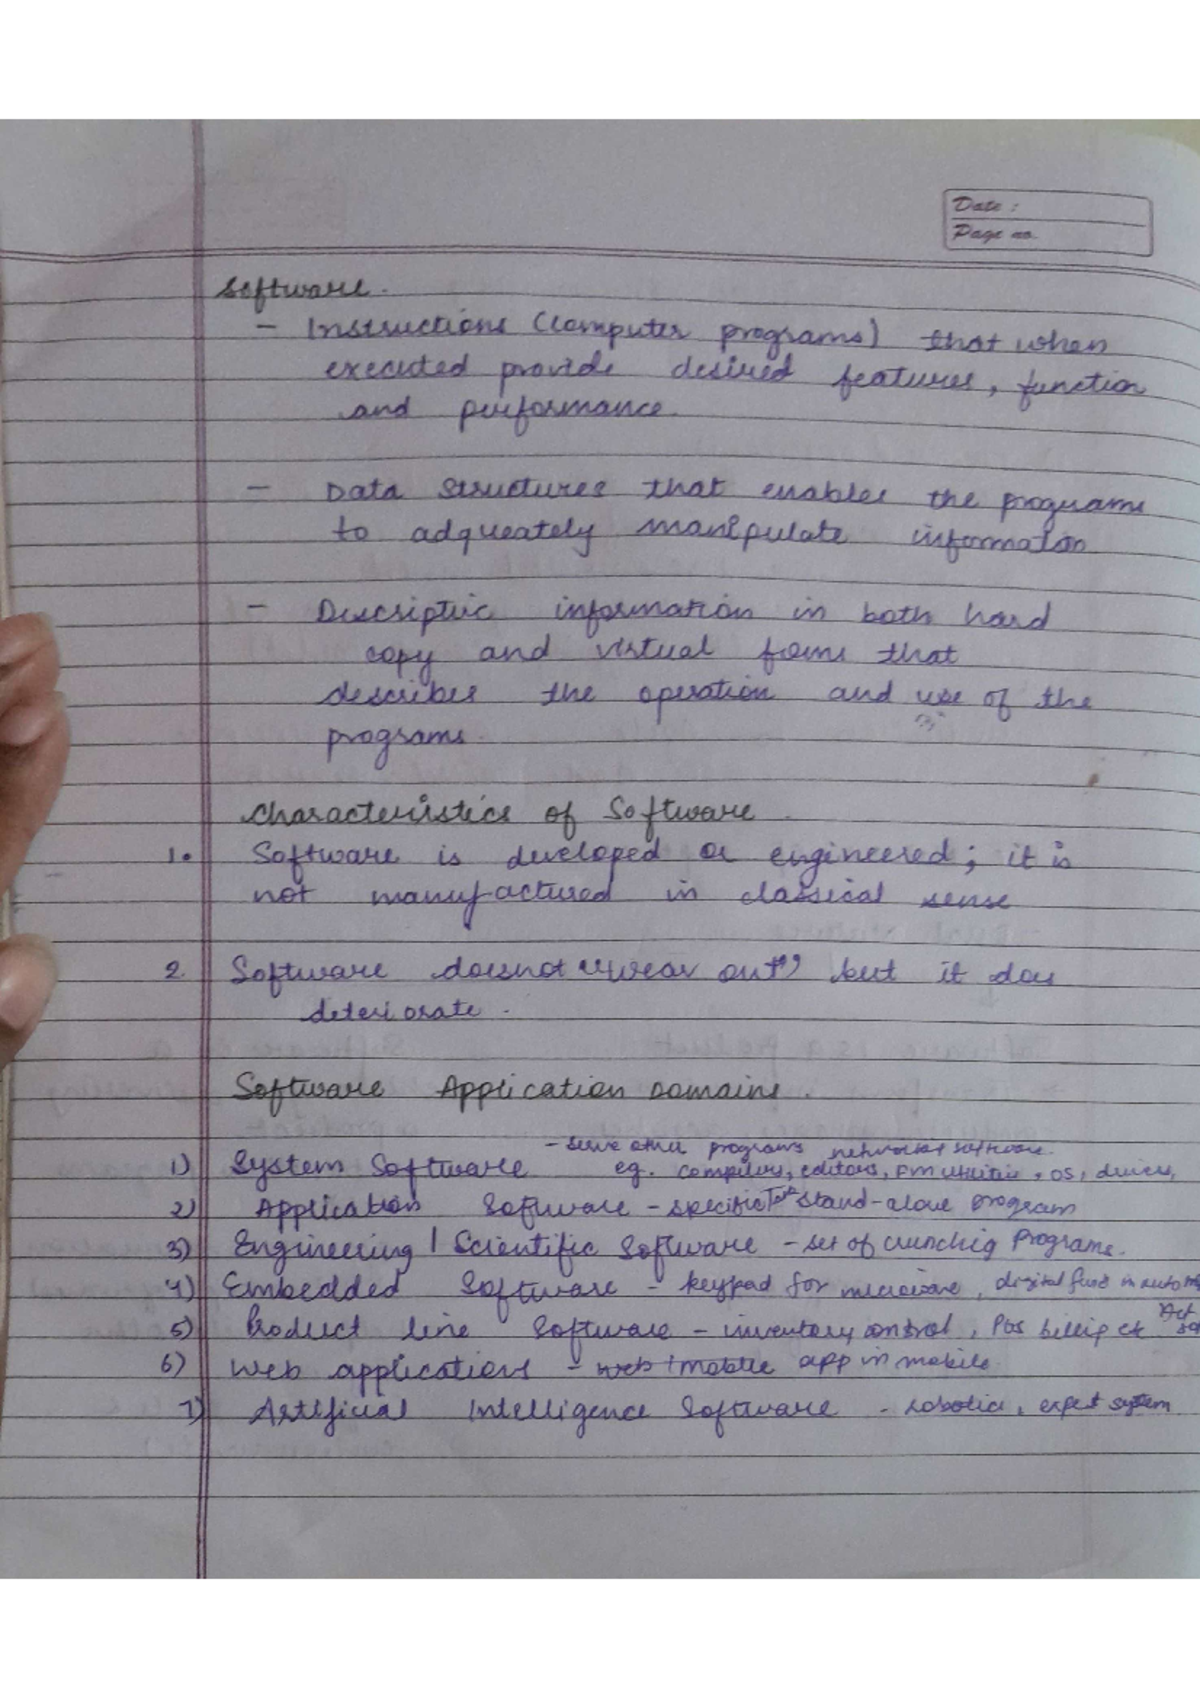 Date :
Page no.
Software.
- Instructions (computer programs) that when
executed provide desired features, function
and performance.
- Data structures that enables the programs
to adqueately manipulate informaton
- Descriptive information in both hard
copy and virtual forms that
describes the operation and use of the
programs.
Characteristics of Software.
1. Software is developed or engineered; it is
not manufactured in classical sense
2. Software doesnot "wear out" but it does
deteriorate.
Software Application Domains.
- serve other programs networked software.
1) System Software eg. compilers, editors, FM utilities, OS, drivers,
2) Application Software - specific stand-alone program
3) Engineering / Scientific Software - set of crunching programs.
4) Embedded Software - keypad for microwave, digital in
5) Product line Software - inventory control, POS billing
6) Web applications - web + mobile app in mobile.
7) Artificial Intelligence Software - robotics, expert system